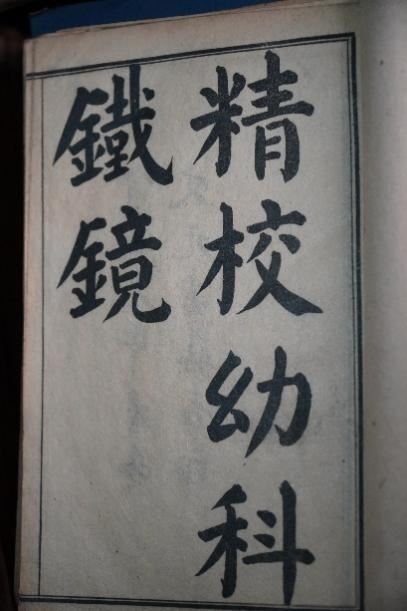 精校幼科
鐵鏡